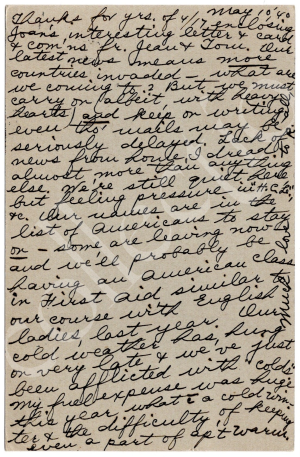 May 10-40
Thanks for yrs. of 4/17 enclosing
Joans interesting letter & card
& com'ns fr. Jean & Tom. Our
latest news means more
countries invaded - what are
we coming to? But, we must
carry on (albeit, with heavy
hearts) and keep on writing
even tho' mails may be
seriously delayed. Lack of
news from home I dread
almost more than anything
else. We're still quiet here
but feeling pressure in H.C.L.
&c. Our names are in the
list of Americans to stay
on - some are leaving now -
and we'll probably be
having an American class
in First Aid similar to
our course with English
ladies, last year. Our
cold weather has hung
on very late & we've just
been afflicted with colds
my fuel expense was huge
this year, what a cold win-
ter & the difficulty of keeping
even a part of apt. warm
Much love